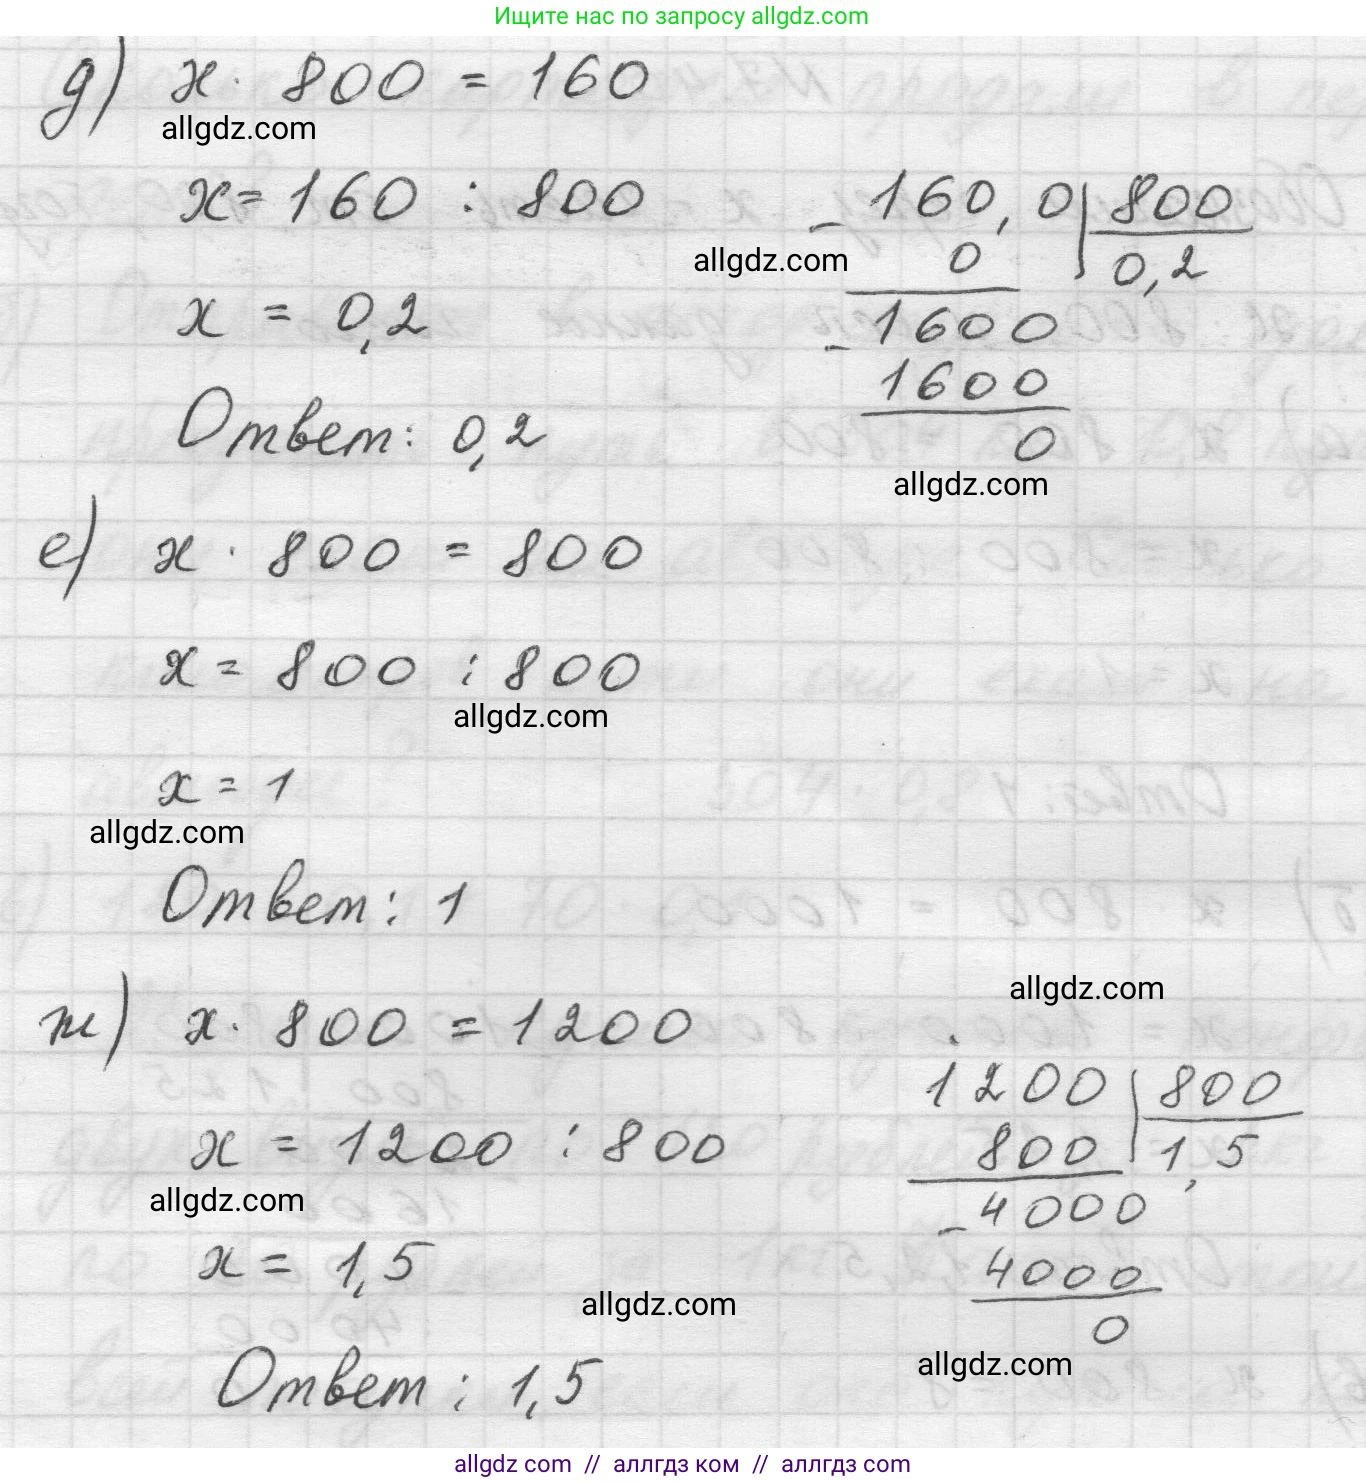 Ищите нас по запросу allgdz.com
д) x · 800 = 160
allgdz.com
x = 160 : 800
160,0 | 800
allgdz.com
0
0,2
x = 0,2
1600
1600
0
Ответ: 0,2
allgdz.com
е) x · 800 = 800
x = 800 : 800
allgdz.com
x = 1
allgdz.com
Ответ: 1
allgdz.com
ж) x · 800 = 1200
1200 | 800
800
1,5
x = 1200 : 800
allgdz.com
- 4000
4000
0
x = 1,5
allgdz.com
allgdz.com
Ответ: 1,5
allgdz com // аллгдз ком // allgdz.com